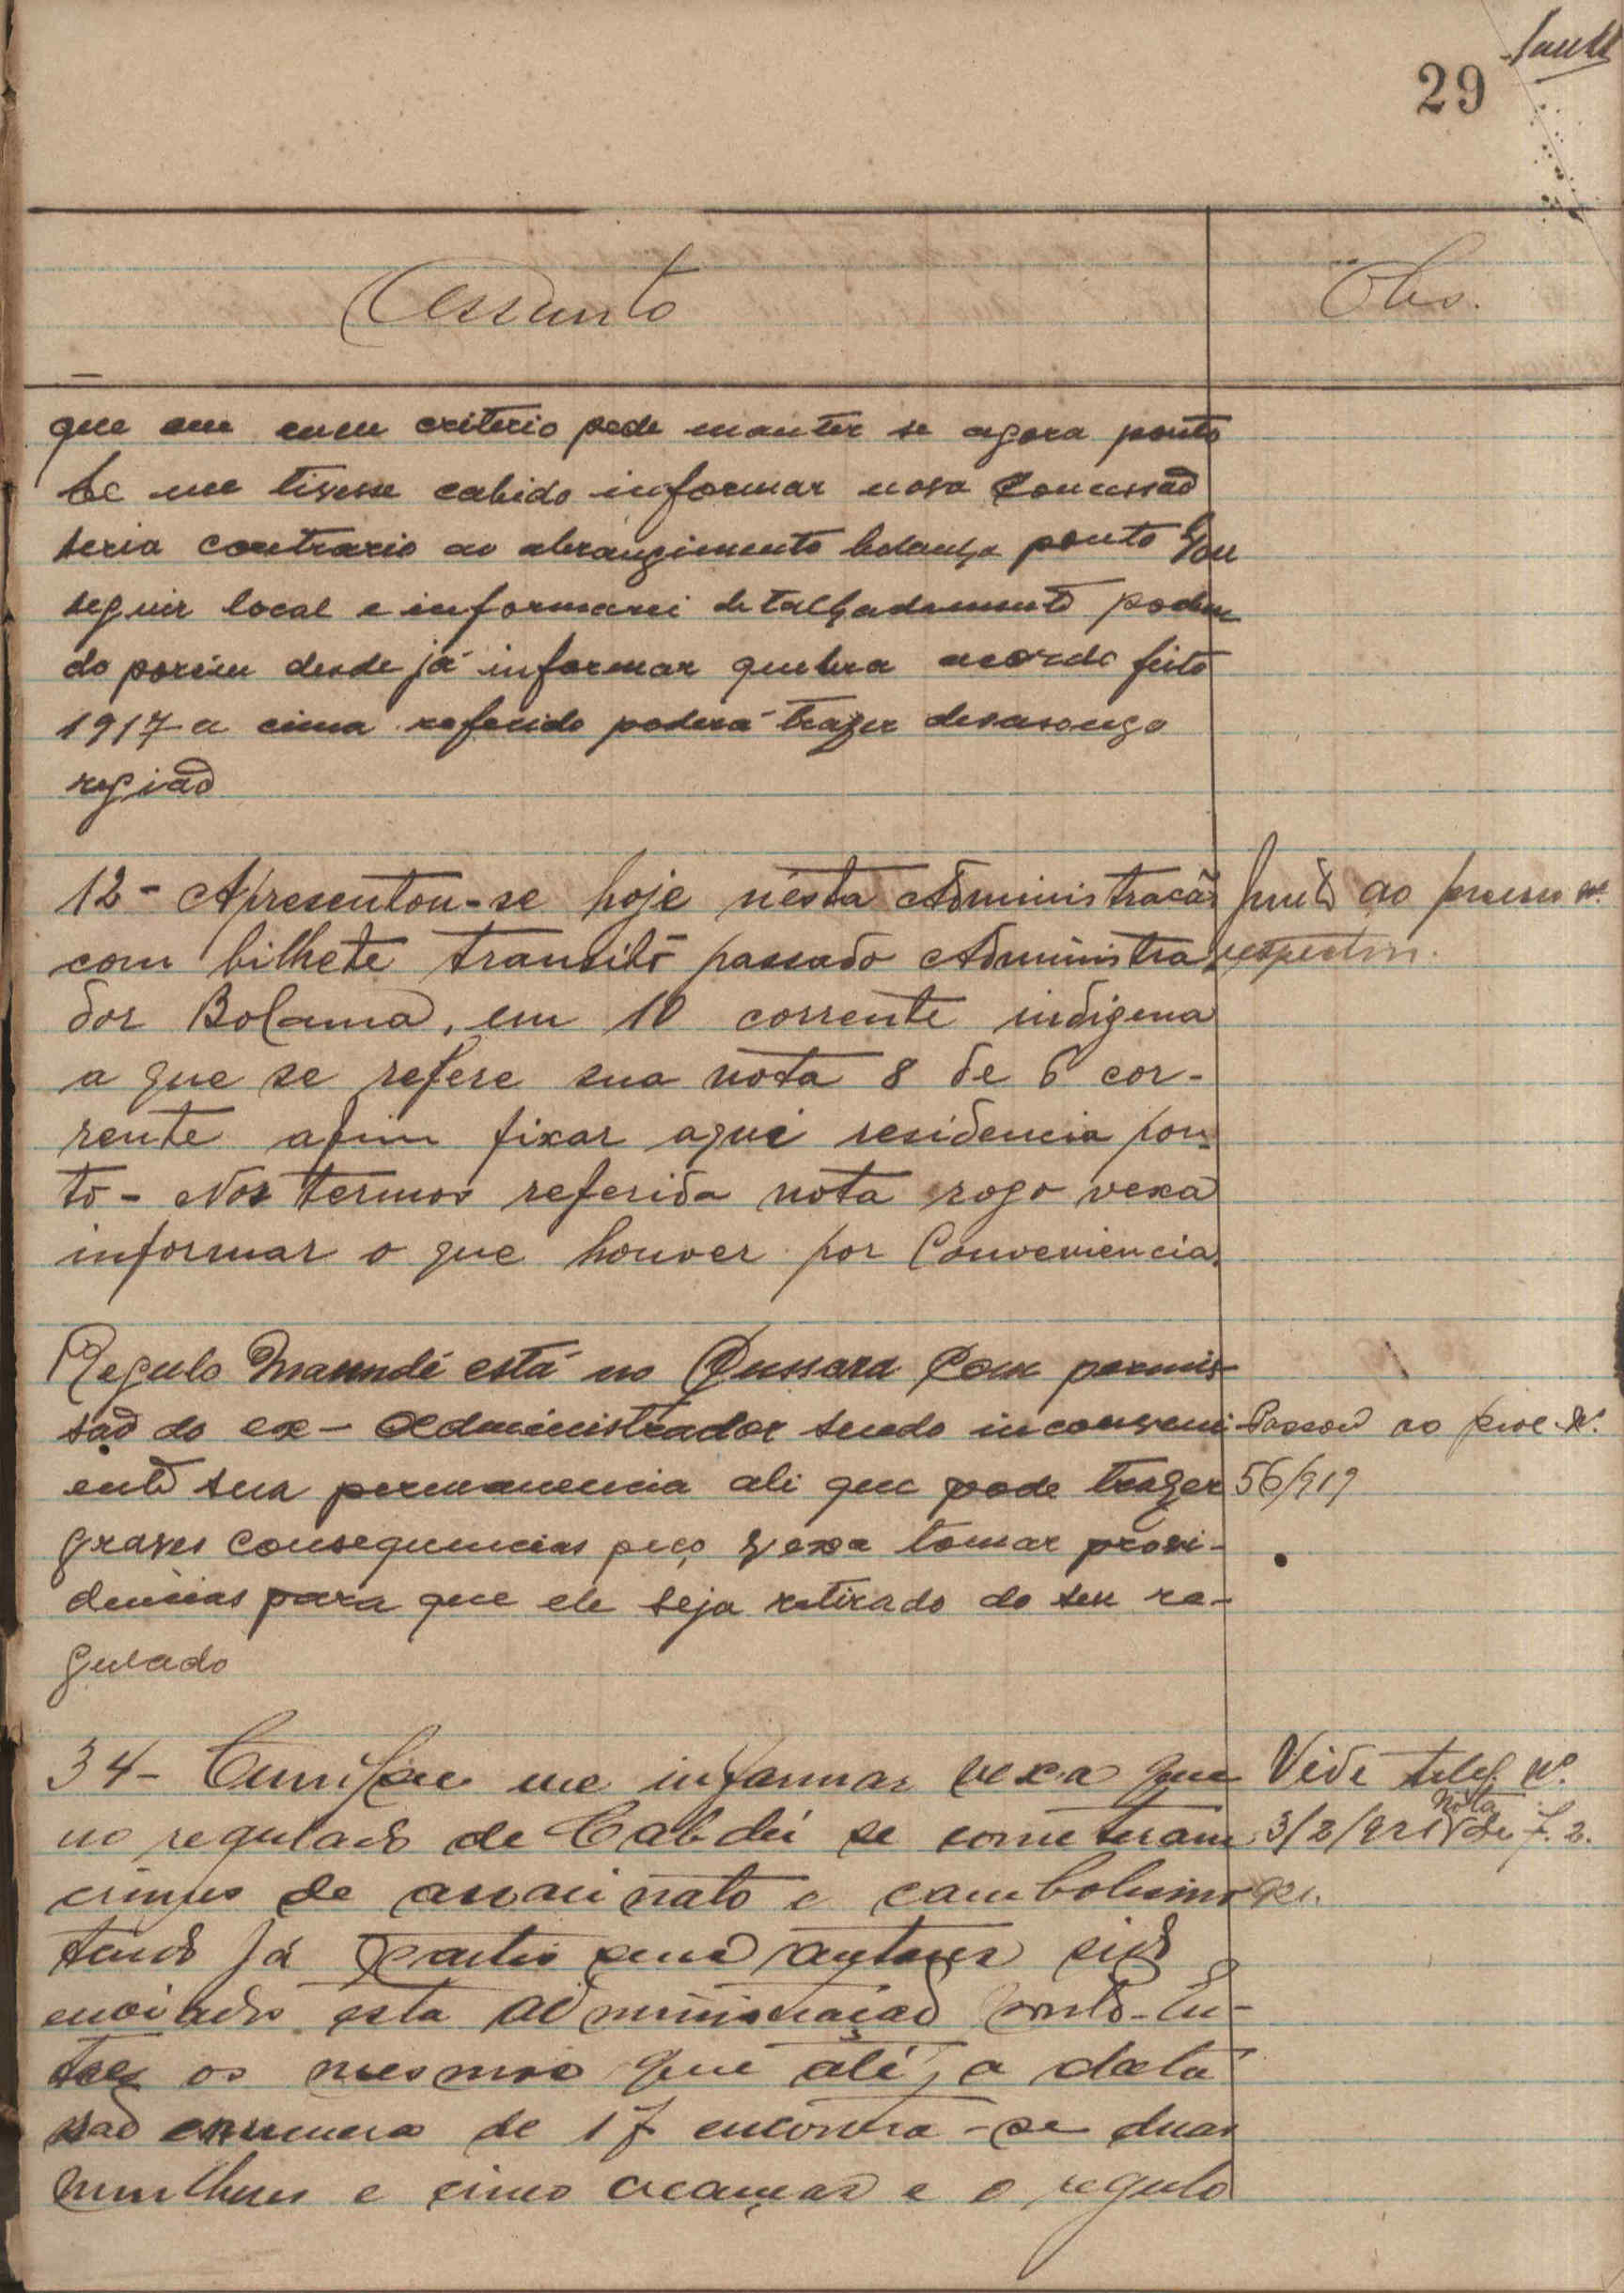 29
Assunto
Obs.
que em meu criterio pode manter se agora ponto
Se me tivesse cabido informar nova concessão
seria contrario ao abrangimento balanta ponto Vou
seguir local e informarei detalhadamente poden
do porém desde já informar quebra acordo feito
1917 a cima referido poderá trazer desasocego
região
12 - Apresentou-se hoje nésta Administracão
Junto ao processo nº
com bilhete transito passado Administra
respectivo.
dor Bolama, em 10 corrente indigena
a que se refere sua nota 8 de 6 cor-
rente afim fixar aqui residencia pon-
to - Nos termos referida nota rogo vexa
informar o que houver por Conveniencia.
Regulo Mamadé está no Qussara com permis
são do ex-Administrador sendo inconveni
Passou ao proc. Nº
ente sua permanencia ali que pode trazer
56/919
graves consequencias peço vexa tomar provi-
dencias para que ele seja retirado do seu re-
gulado
34 - Cumpre me informar vexa que
Vide teleg. nº
no regulado de Cabdú se cometeram
3/2/921 Nota de f. 2.
crimes de assacinato e canibolismo
921.
tendo já partes seus autores sido
enviados esta administração ponto - En-
tre os mesmos que até, a data
são em numero de 17 encontra-se duas
mulheres e cinco creanças e o regulo